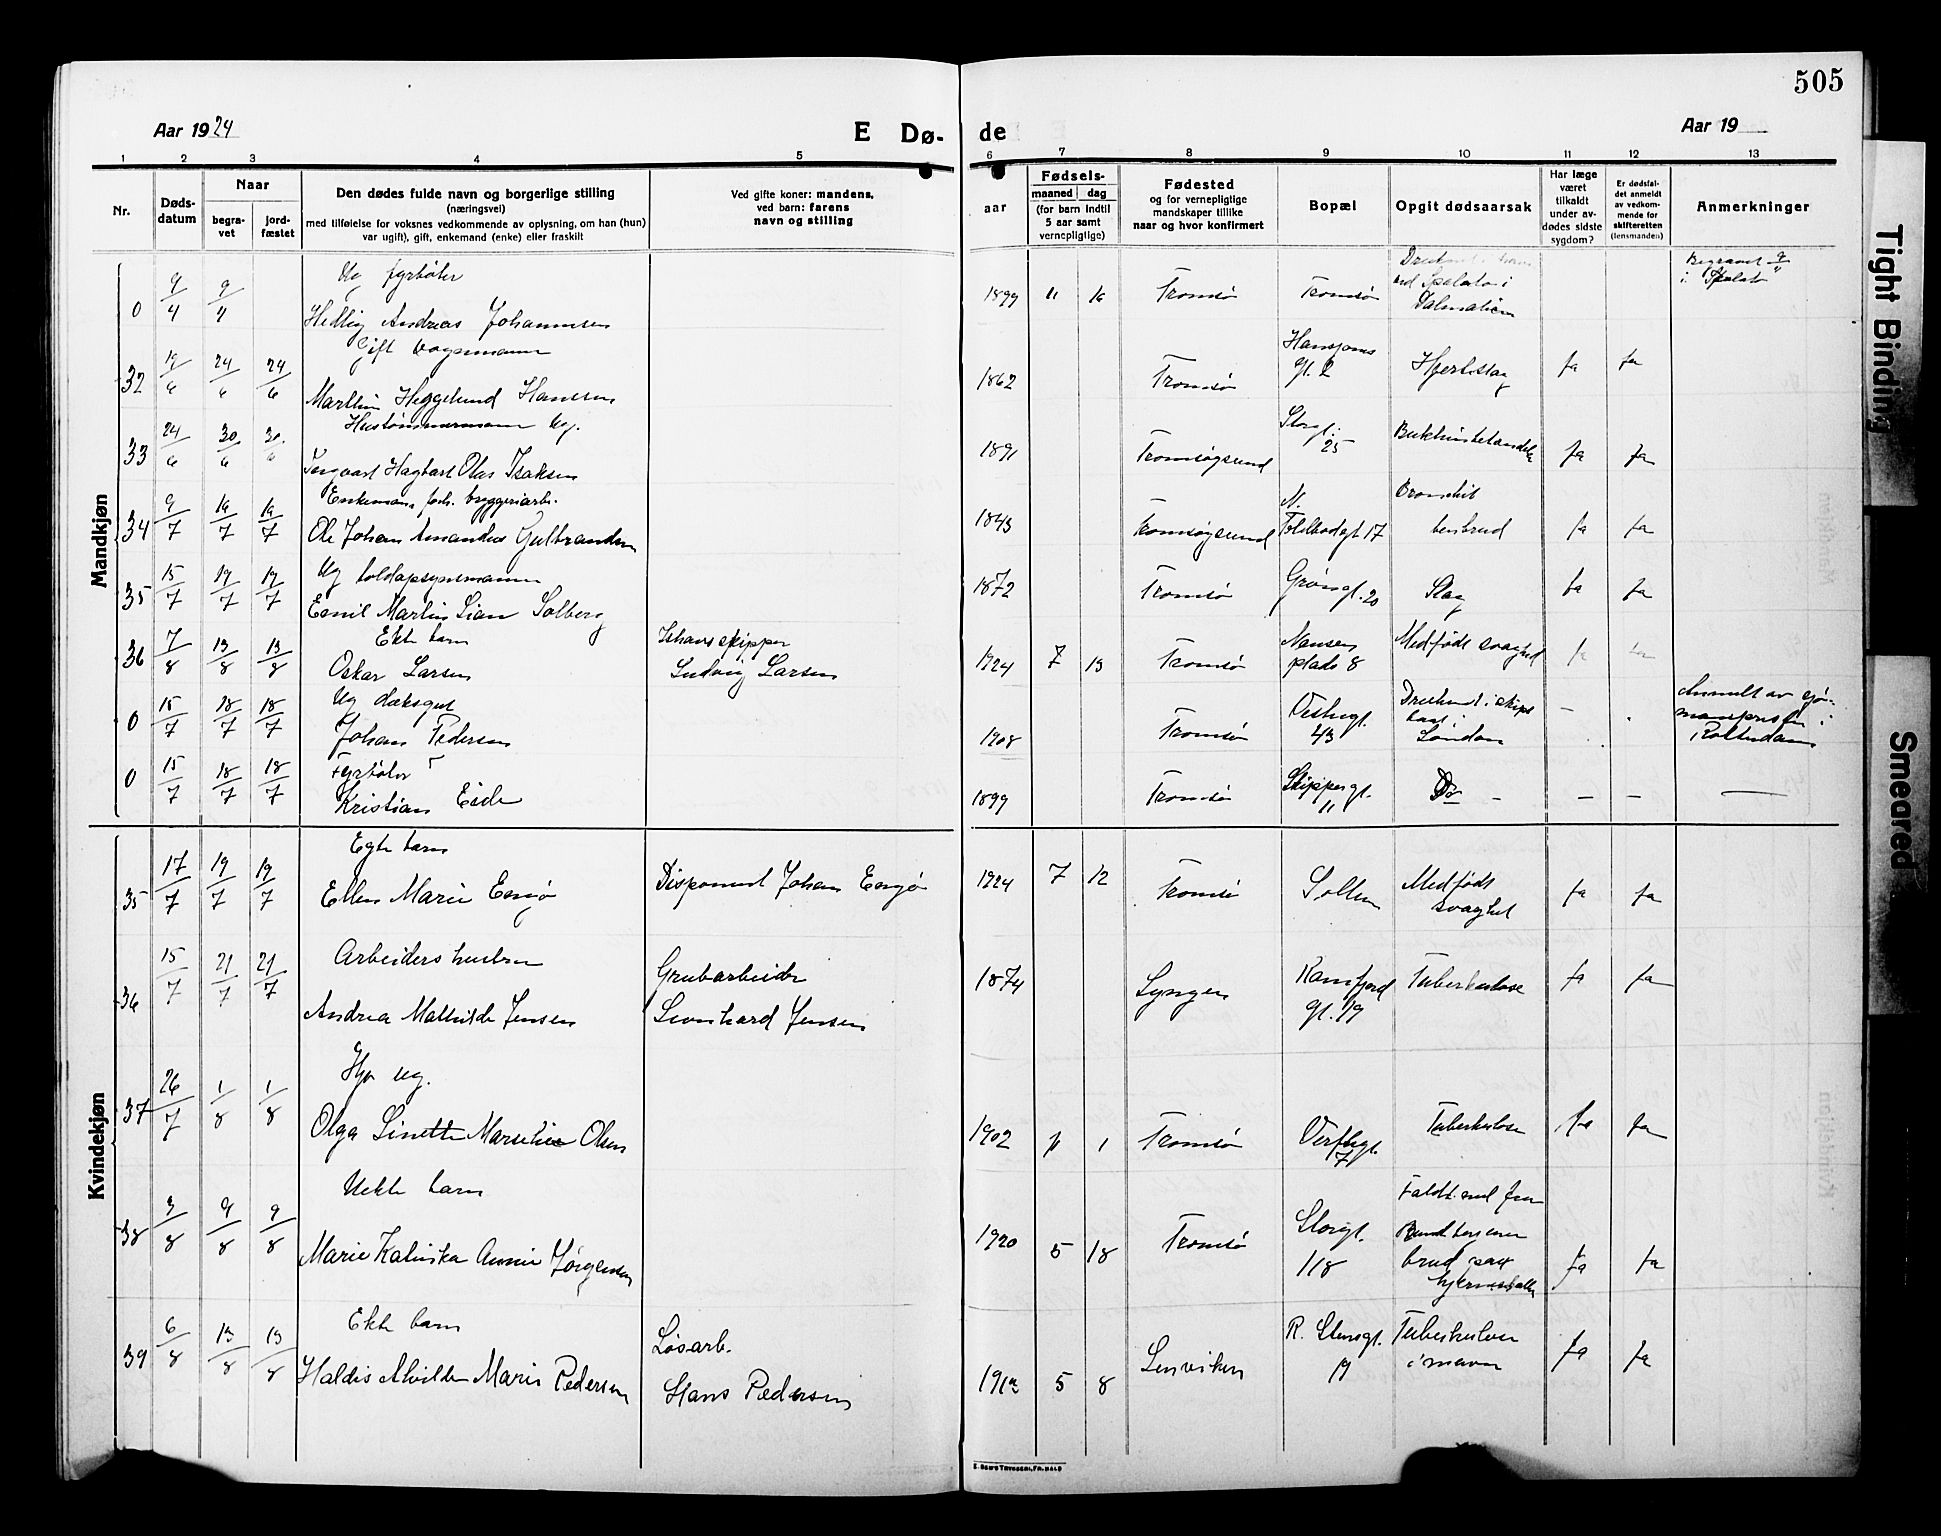 505
Aar 1924
E Dø-
de
Aar 19
1 2 3 4 5 6 7 8 9 10 11 12 13
Nr.
Døds-
datum
Naar
begra-
vet
jord-
fæstet
Den dødes fulde navn og borgerlige stilling
(næringsvei)
med tilføielse for voksnes vedkommende av oplysning, om han (hun)
var ugift), gift, enkemand (enke) eller fraskilt
Ved gifte koner: mandens,
ved barn: farens
navn og stilling
Fødsels-
aar
maaned dag
(for barn indtil
5 aar samt
vernepligtige)
Fødested
og for vernepligtige
mandskaper tillike
naar og hvor konfirmert
Bopæl
Opgit dødsaarsak
Har læge
været
tilkaldt
under av-
dødes sidste
sygdom?
Er dødsfal-
det anmeldt
av vedkom-
mende for
skifteretten
(lensmanden)
Anmerkninger
Mandkjøn
Ug fyrbøter
0 9/4 9/4 Hedley Andreas Johannesen 1899 11 16 Tromsø Tromsø
ved Spalato i
Dalmatien
Begravet
i Spalato
Gift vognmann
32 19/6 24/6 24/6 Marthin Heggelund Hansen 1862 Tromsø gt. 2 Hjerteslag ja ja
Hustømmermann ug.
33 24/6 30/6 30/6 Hagbart Olas Isaksen 1891 Tromsøysund Storgt. 25 ja ja
Enkeman, forh. bryggeriarb.
34 9/7 14/7 14/7 Ole Johan Amandus Gulbrandsen 1843 Tromsøysund N. Toldbodgt 17 ja ja
Ug toldopsynsmann
35 15/7 19/7 19/7 Emil Martin Sian Solberg 1872 Tromsø Grønegt. 20 Slag ja ja
Ekte barn
36 7/8 13/8 13/8 Oskar Larsen
Ishavsskipper
Ludvig Larsen
1924 7 13 Tromsø Nansens plads 8 Medfødt svaghet ja ja
Ug dæksgut
0 15/7 18/7 18/7 Johan Pedersen 1908 Tromsø Vestregt. 43
Druknet i skips
havn i
London
Anmeldt av sjø-
mannspresten i
Rotterdam
Fyrbøter
0 15/7 18/7 18/7 Kristian Eide 1899 Tromsø Skippergt. 11 Do - - - -
Kvindekjøn
Egte barn
35 17/7 19/7 19/7 Ellen Marie Engjø Disponent Johan Engjø 1924 7 12 Tromsø Medfødt svaghet ja ja
Arbeiders hustru
36 15/7 21/7 21/7 Andrea Mathilde Jensen
Grubarbeider
Leonhard Jensen
1874 Lyngen Ramfjord gt. 19 Tuberkulose ja ja
Hjv ug.
37 26/7 1/8 1/8 Olga Linette Marselie Olsen 1902 1 Tromsø Verftsgt. 7 Tuberkulose ja ja
Uekte barn
38 3/8 9/8 9/8 Marie Kalinka Annie Jørgensen 1920 5 18 Tromsø Storgt. 118
Faldt ned fra
brud paa
hjerneskallen
ja ja
Ekte barn
39 6/8 13/8 13/8 Haldis Alvilde Marie Pedersen
Løsarb.
Hans Pedersen
5 8 Lenviken R. Stensgt. 19
Tuberkulose
i maven
ja ja
Tight Binding
Smeared